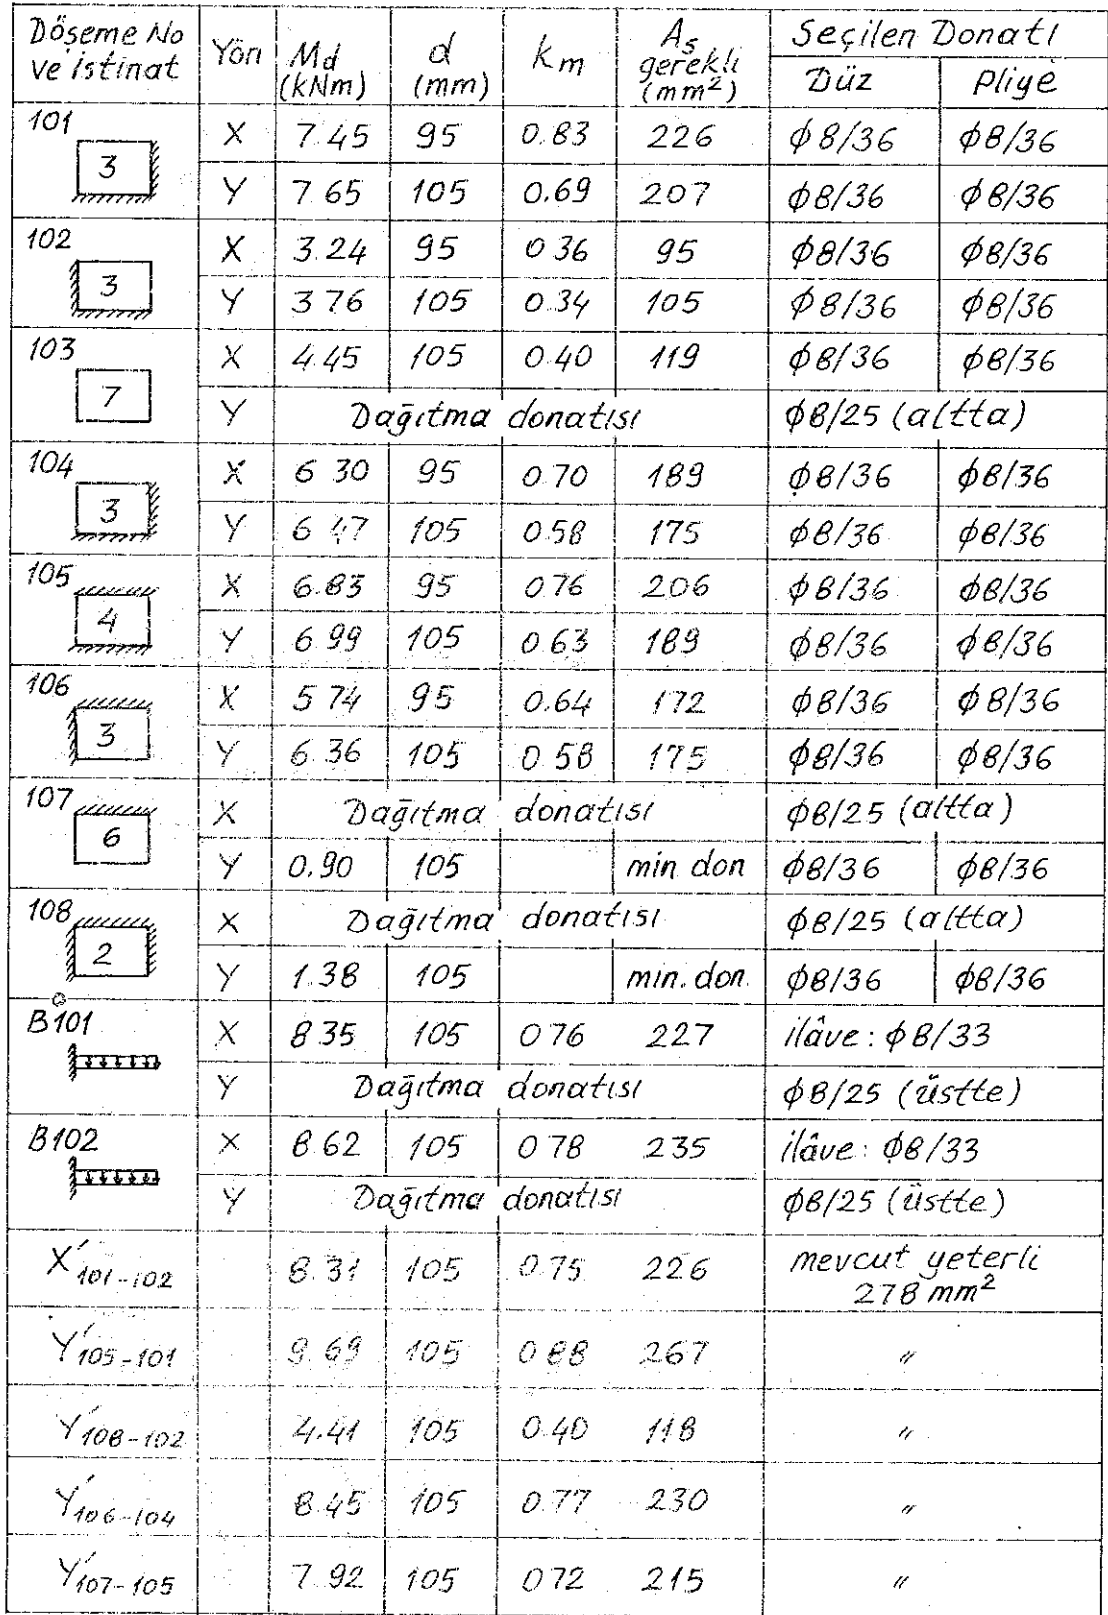 Döşeme No ve istinat Yön Md (kNm) d (mm) km As gerekli (mm²) Seçilen Donatı
Düz Pliye
101 3 X 7.45 95 0.83 226 ϕ8/36 ϕ8/36
Y 7.65 105 0.69 207 ϕ8/36 ϕ8/36
102 3 X 3.24 95 0.36 95 ϕ8/36 ϕ8/36
Y 3.76 105 0.34 105 ϕ8/36 ϕ8/36
103 7 X 4.45 105 0.40 119 ϕ8/36 ϕ8/36
Y Dağıtma donatısı ϕ8/25 (altta)
104 3 X 6.30 95 0.70 189 ϕ8/36 ϕ8/36
Y 6.47 105 0.58 175 ϕ8/36 ϕ8/36
105 4 X 6.83 95 0.76 206 ϕ8/36 ϕ8/36
Y 6.99 105 0.63 189 ϕ8/36 ϕ8/36
106 3 X 5.74 95 0.64 172 ϕ8/36 ϕ8/36
Y 6.36 105 0.58 175 ϕ8/36 ϕ8/36
107 6 X Dağıtma donatısı ϕ8/25 (altta)
Y 0.90 105 min don ϕ8/36 ϕ8/36
108 2 X Dağıtma donatısı ϕ8/25 (altta)
Y 1.38 105 min. don. ϕ8/36 ϕ8/36
B101 X 8.35 105 0.76 227 ilâve: ϕ8/33
Y Dağıtma donatısı ϕ8/25 (üstte)
B102 X 8.62 105 0.78 235 ilâve: ϕ8/33
Y Dağıtma donatısı ϕ8/25 (üstte)
X'101-102 8.31 105 0.75 226 mevcut yeterli
278 mm²
Y'105-101 9.69 105 0.88 267 〃
Y'108-102 4.41 105 0.40 118 〃
Y'106-104 8.45 105 0.77 230 〃
Y'107-105 7.92 105 0.72 215 〃